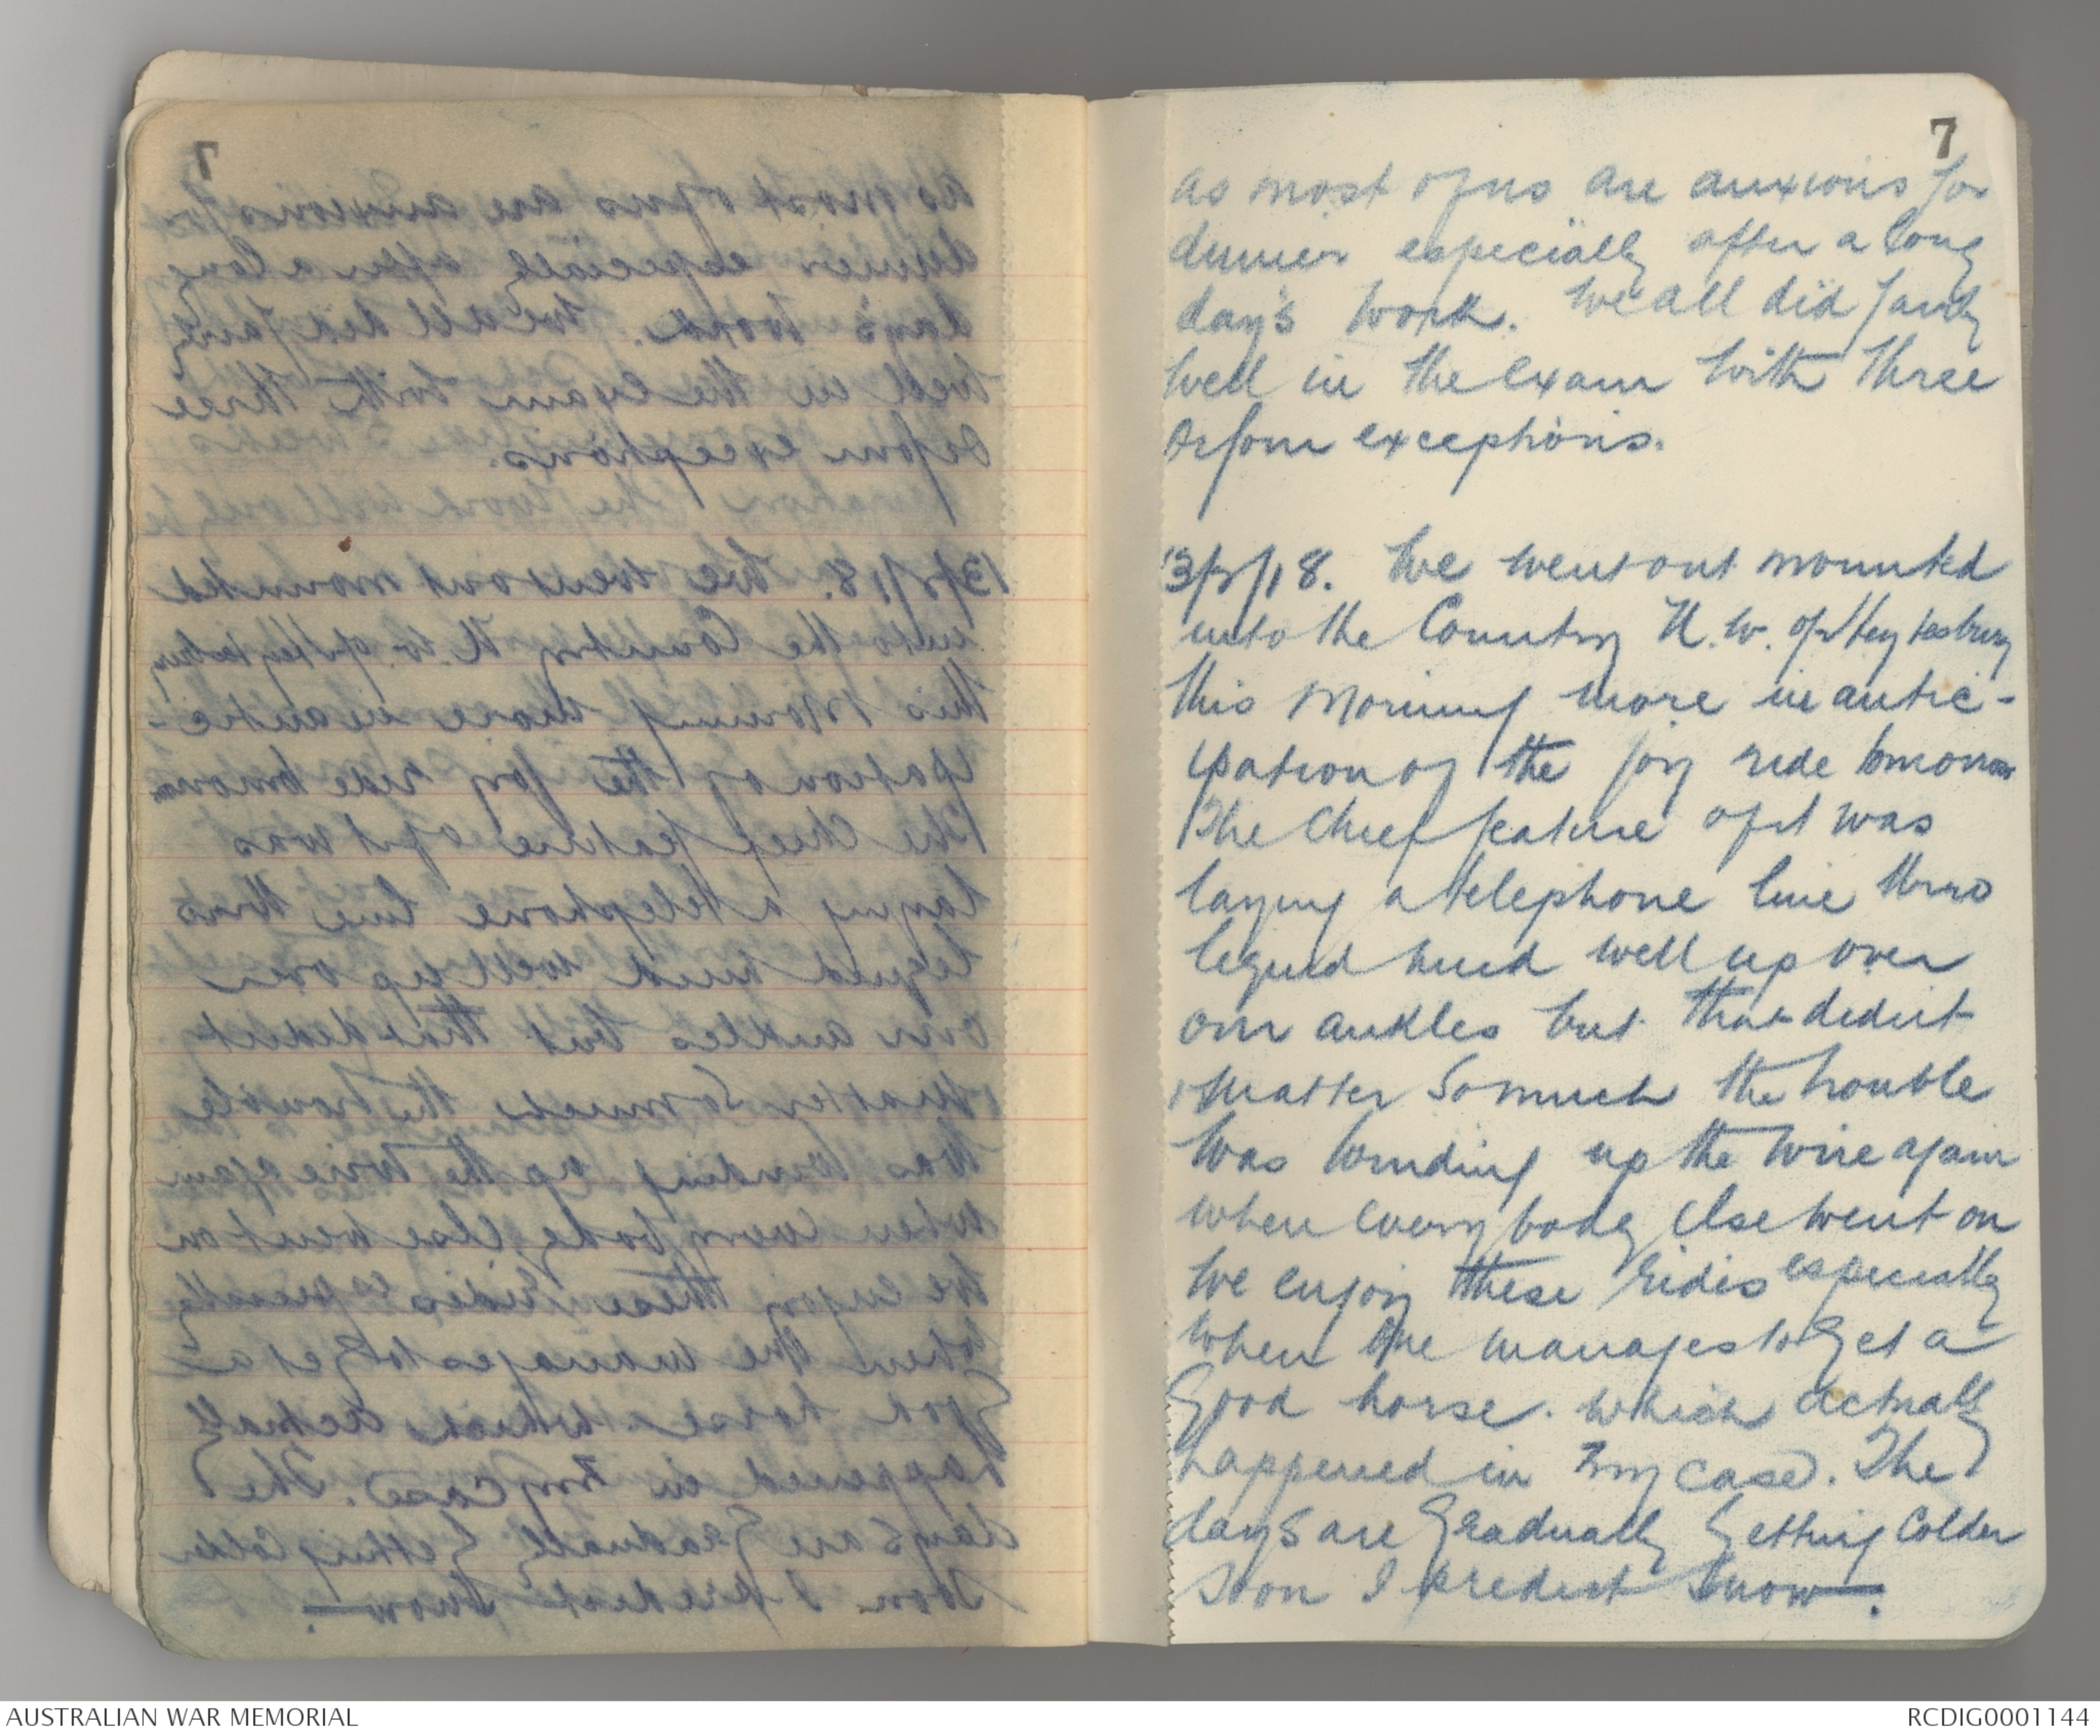 7
as most of us are anxious for
dinner especially after a long
day's work. We all did fairly
well in the exam with three
or four exceptions.
13/ /18. We went out mounted
into the Country N.W. of Heytesbury
this morning more in antic-
ipation of the joy ride tomorrow
The chief feature of it was
laying a telephone line thro
liquid mud well up over
our ankles but that didn't
matter so much the trouble
was winding up the wire again
when every body else went on
We enjoy these rides especially
when one manages to get a
good horse. which actually
happened in my case. The
days are gradually getting colder
soon I predict snow.
7
AUSTRALIAN WAR MEMORIAL
RCDIG0001144